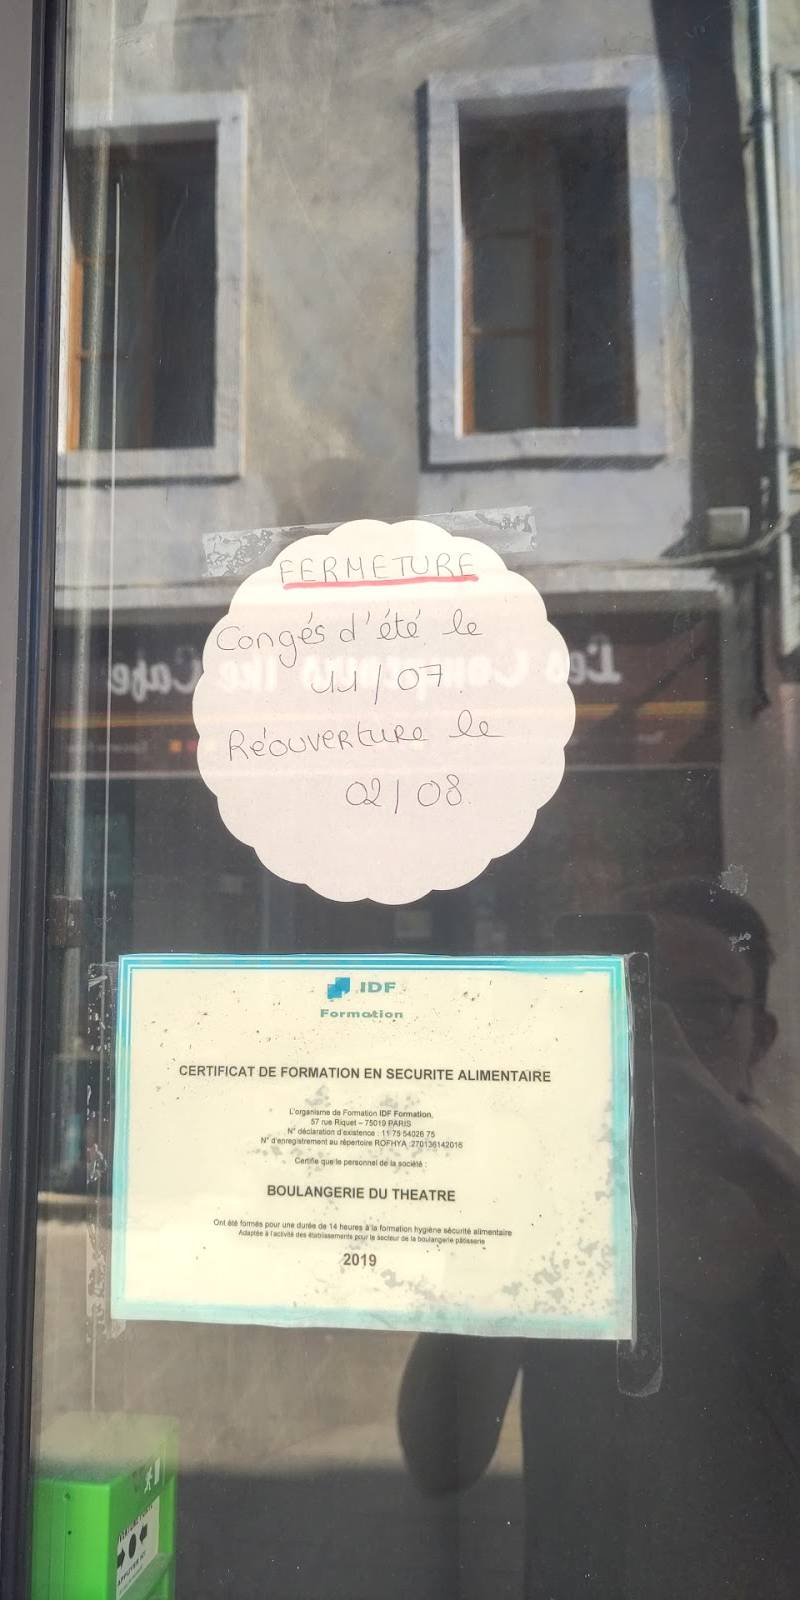 FERMETURE
Congés d'été le
11/07.
Réouverture le
02/08.
Les Comptoirs The Cafe
IDF
Formation
CERTIFICAT DE FORMATION EN SECURITE ALIMENTAIRE
L'organisme de Formation IDF Formation,
57 rue Riquet – 75019 PARIS
N° déclaration d'existence : 11 75 54026 75
N° d'enregistrement au répertoire ROFHYA :270136142016
Certifie que le personnel de la société :
BOULANGERIE DU THEATRE
Ont été formés pour une durée de 14 heures à la formation hygiène sécurité alimentaire
Adaptée à l'activité des établissements pour le secteur de la boulangerie pâtisserie
2019
APPUYER ICI